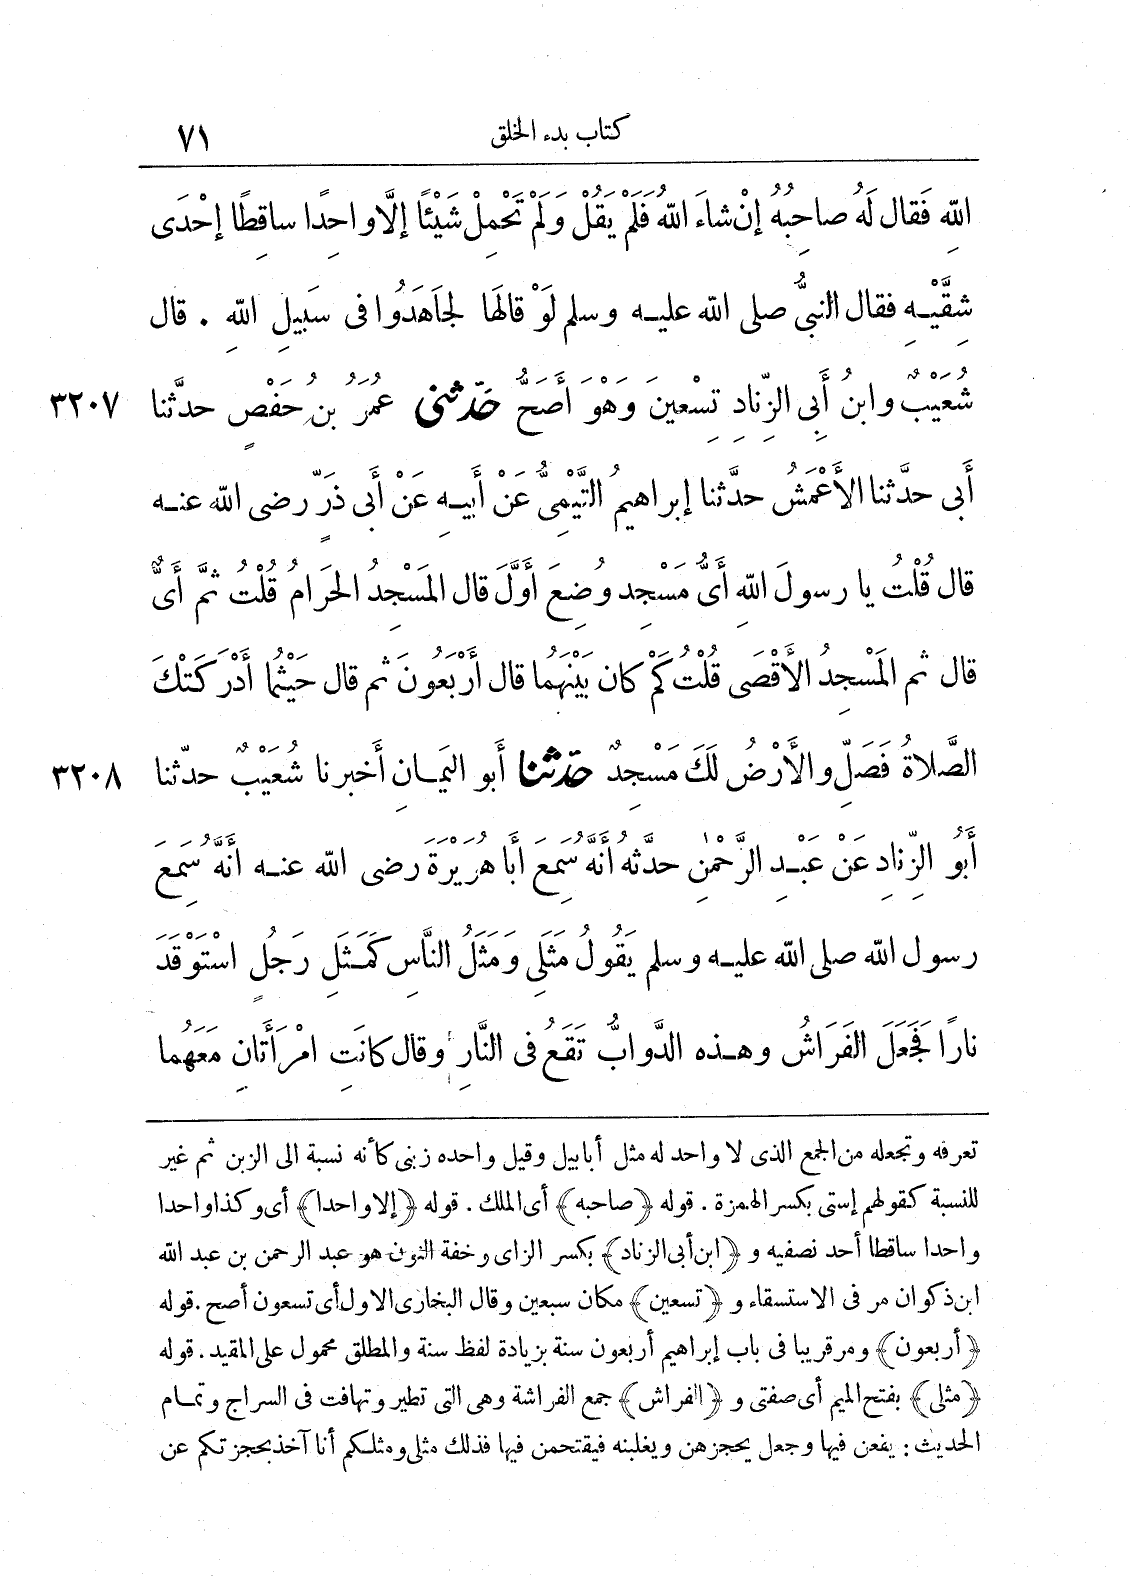 كتاب بدء الخلق ٧١
اللهِ فَقال لَهُ صاحِبُهُ إنْ شاءَ اللهُ فَلَمْ يَقُلْ وَلَمْ تَحْمِلْ شَيْئًا إلَّا واحِدًا ساقِطًا إحْدَى
شِقَّيْهِ فقال النبيُّ صلى الله عليه وسلم لَوْ قالَهَا لَجَاهَدُوا فى سَبِيلِ اللهِ . قال
شُعَيْبٌ وابنُ أَبِى الزِّنادِ تِسْعِينَ وَهْوَ أَصَحُّ حَدَّثَنى عُمَرُ بنِ حَفْصٍ حدَّثنا ٣٢٠٧
أَبى حدَّثنا الأَعْمَشُ حدَّثنا إبراهيمُ التَّيْمِىُّ عَنْ أَبِيهِ عَنْ أَبى ذَرٍّ رضى الله عنه
قال قُلْتُ يا رسولَ اللهِ أَىُّ مَسْجِدٍ وُضِعَ أَوَّلَ قال المَسْجِدُ الحَرامُ قُلْتُ ثمَّ أَىٌّ
قال ثم المَسْجِدُ الأَقْصَى قُلْتُ كَمْ كان بَيْنَهُما قال أَرْبَعُونَ ثم قال حَيْثُما أَدْرَكَتْكَ
الصَّلاةُ فَصَلِّ والأَرْضُ لَكَ مَسْجِدٌ حَدَّثنا أَبو اليَمانِ أَخبرنا شُعَيْبٌ حدّثنا ٣٢٠٨
أَبُو الزِّنادِ عَنْ عَبْدِ الرَّحْمٰنِ حدَّثهُ أَنَّهُ سَمِعَ أَبَا هُرَيْرَةَ رضى الله عنه أَنَّهُ سَمِعَ
رسول الله صلى الله عليه وسلم يَقُولُ مَثَلِى وَمَثَلُ النَّاسِ كَمَثَلِ رَجُلٍ اسْتَوْقَدَ
نارًا فَجَعَلَ الفَرَاشُ وهذه الدَّوابُّ تَقَعُ فى النَّارِ وقال كانَتِ امْرَأَتانِ مَعَهُما
تعرفه وتجعله من الجمع الذى لا واحد له مثل أبابيل وقيل واحده زبنى كأنه نسبة الى الزبن ثم غير
للنسبة كقولهم إستى بكسر الهمزة . قوله ﴿صاحبه﴾ أى الملك . قوله ﴿إلا واحدا﴾ أى وكذا واحدا
واحدا ساقطا أحد نصفيه و ﴿ابن أبى الزناد﴾ بكسر الزاى وخفة النون هو عبد الرحمن بن عبد الله
ابن ذكوان مر فى الاستسقاء و ﴿تسعين﴾ مكان سبعين وقال البخارى الاول أى تسعون أصح . قوله
﴿أربعون﴾ ومر قريبا فى باب إبراهيم أربعون سنة بزيادة لفظ سنة والمطلق محمول على المقيد . قوله
﴿مثلى﴾ بفتح الميم أى صفتى و ﴿الفراش﴾ جمع الفراشة وهى التى تطير وتهافت فى السراج وتمام
الحديث : يفعن فيها وجعل يحجزهن ويغلبنه فيقتحمن فيها فذلك مثلى ومثلكم أنا آخذ بحجزتكم عن